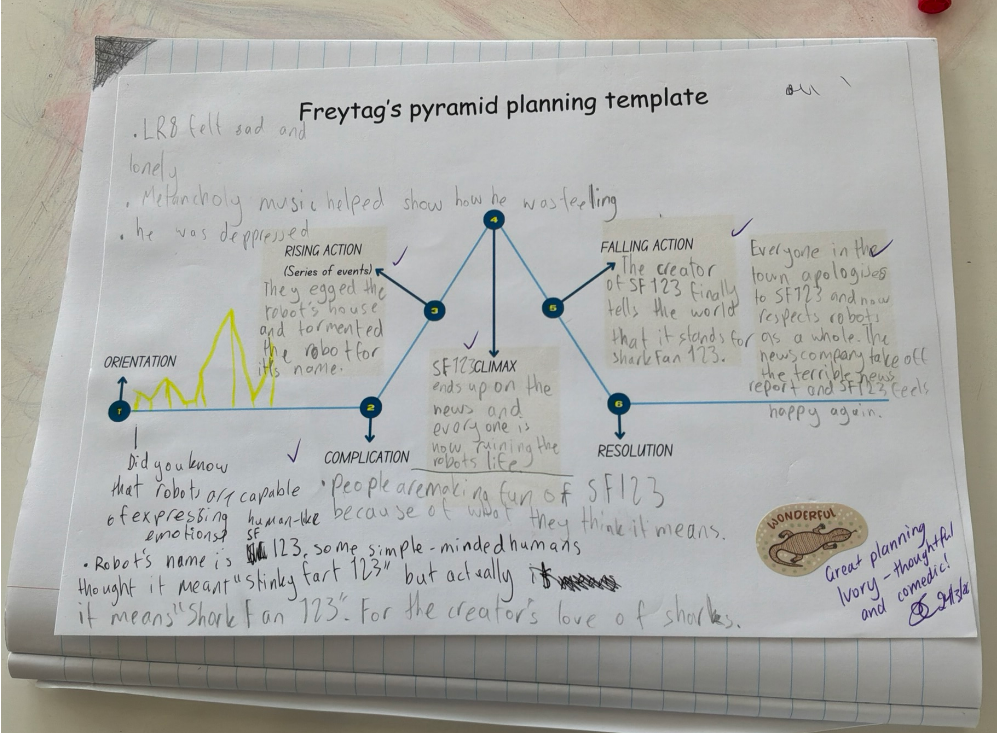 Freytag's pyramid planning template
. LR8 felt sad and
lonely
. Melancholy music helped show how he was feeling
. he was deppressed
RISING ACTION
(Series of events)
They egged the
robot's house
and tormented
the robot for
it's name.
4
3
5
FALLING ACTION
The creator
of SF123 finally
tells the world
that it stands for
shark fan 123.
Everyone in the
town apologises
to SF123 and now
respects robots
as a whole. The
news company take off
the terrible news
report and SF123 feels
happy again.
ORIENTATION
1
2
COMPLICATION
SF123 CLIMAX
ends up on the
news and
everyone is
now ruining the
robots life
6
RESOLUTION
Did you know
that robots are capable
of expressing human-like
emotions?
• People are making fun of SF123
because of what they think it means.
• Robot's name is SF 123, some simple-minded humans
thought it meant "Stinky fart 123" but actually
it means "Shark Fan 123". For the creator's love of sharks.
WONDERFUL
Great planning
Ivory - thoughtful
and comedic!